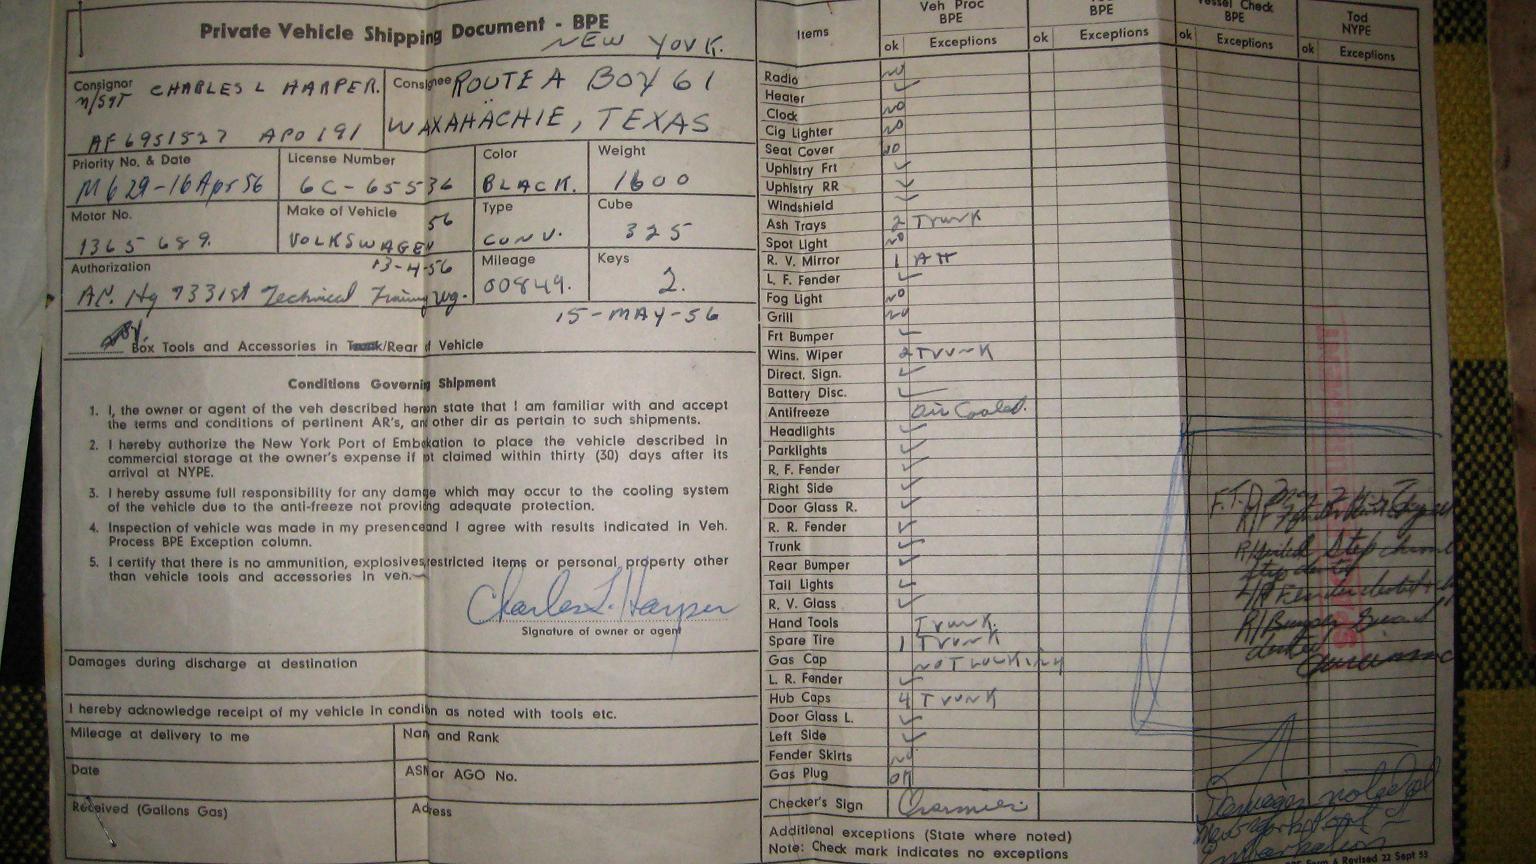 Private Vehicle Shipping Document - BPE
NEW YORK.
Consignor
M/SGT CHARLES L HARPER.
AF 6951527 APO 191
Consignee ROUTE A BOX 61
WAXAHACHIE, TEXAS
Priority No. & Date
M629-16Apr56
License Number
6C-65536
Color
BLACK.
Weight
1600
Motor No.
1365689.
Make of Vehicle 56
VOLKSWAGEN
Type
CONV.
Cube
325
Authorization 13-4-56
Hq 7331st Technical Training Wg.
Mileage
00849.
Keys
2.
15-MAY-56
Box Tools and Accessories in Trunk/Rear of Vehicle
Conditions Governing Shipment
1. I, the owner or agent of the veh described hereon state that I am familiar with and accept
the terms and conditions of pertinent AR's, and other dir as pertain to such shipments.
2. I hereby authorize the New York Port of Embarkation to place the vehicle described in
commercial storage at the owner's expense if not claimed within thirty (30) days after its
arrival at NYPE.
3. I hereby assume full responsibility for any damage which may occur to the cooling system
of the vehicle due to the anti-freeze not providing adequate protection.
4. Inspection of vehicle was made in my presence and I agree with results indicated in Veh.
Process BPE Exception column.
5. I certify that there is no ammunition, explosives, restricted items or personal property other
than vehicle tools and accessories in veh.
Charles L. Harper
Signature of owner or agent
Damages during discharge at destination
I hereby acknowledge receipt of my vehicle in condition as noted with tools etc.
Mileage at delivery to me
Name and Rank
Date
ASN or AGO No.
Received (Gallons Gas)
Address
Items
Veh Proc
BPE
BPE
Vessel Check
BPE
Tod
NYPE
ok Exceptions
ok Exceptions
ok Exceptions
ok Exceptions
Radio NO
Heater ✓
Clock NO
Cig Lighter NO
Seat Cover NO
Uphlstry Frt ✓
Uphlstry RR ✓
Windshield ✓
Ash Trays 2 Trunk
Spot Light NO
R. V. Mirror 1 Att
L. F. Fender ✓
Fog Light NO
Grill NO
Frt Bumper ✓
Wins. Wiper 2 Trunk
Direct. Sign. ✓
Battery Disc. ✓
Antifreeze Air Cooled.
Headlights ✓
Parklights ✓
R. F. Fender ✓
Right Side ✓
Door Glass R. ✓
R. R. Fender ✓
Trunk ✓
Rear Bumper ✓
Tail Lights ✓
R. V. Glass ✓
Hand Tools Trunk.
Spare Tire 1 Trunk
Gas Cap NOT LOCKING
L. R. Fender ✓
Hub Caps 4 Trunk
Door Glass L. ✓
Left Side ✓
Fender Skirts NO
Gas Plug OK
Checker's Sign
Additional exceptions (State where noted)
Note: Check mark indicates no exceptions
Damages noted
New York Port of
Embarkation
Revised 22 Sept 53